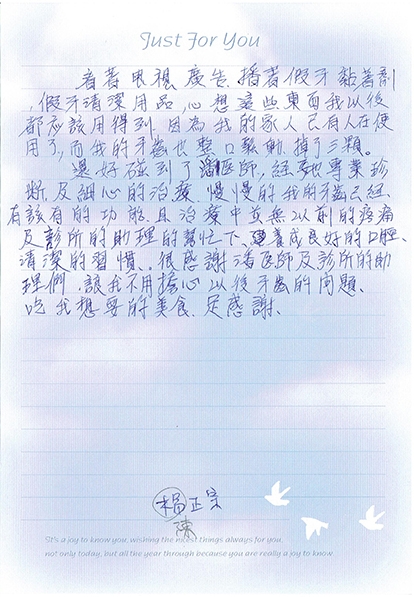 Just For You
看著电視廣告.播著假牙黏著劑
,假牙清潔用品,心想這些東西我以後
都應該用得到.因為我的家人已有人在使
用了,而我的牙齒也整口鬆動.掉了三顆。
還好碰到了潘医師,經她專業診
斷.及細心的治療.慢慢的我的牙齒已經
有該有的功能.且治療中並無以前的疼痛
及診所的助理的幫忙下、養成良好的口腔、
清潔的習慣。很感謝潘医師及診所的助
理們,讓我不用擔心以後牙齒的問題、
吃我想要的美食.足感謝、
楊正宗
陳
It's a joy to know you, wishing the nicest things always for you,
not only today, but all the year through because you are really a joy to know